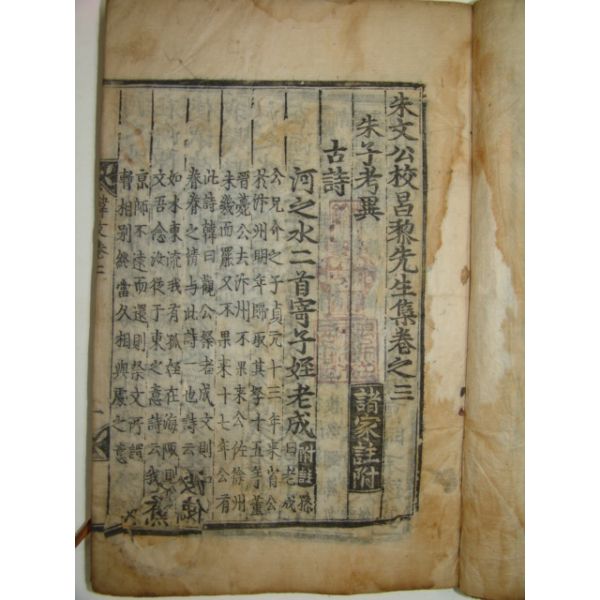 朱文公校昌黎先生集卷之三
朱子考異
諸家註附
古詩
河之水二首寄子姪老成 附註 孫曰老成
公兄介之子貞元十三年來省公
於汴州明年歸取其孥十五年董
晉薨公去汴州不果來公佐徐州
未幾而罷又不果來十七年公有
此詩韓曰觀公祭老成文則知
眷眷之情與此詩一也詩云
如水東流我有孤姪在海陬則
文吾念汝從于東之意詩云我
京師不遠而還則祭文所謂
暫相別終當久相與處之意
韓文卷三
一